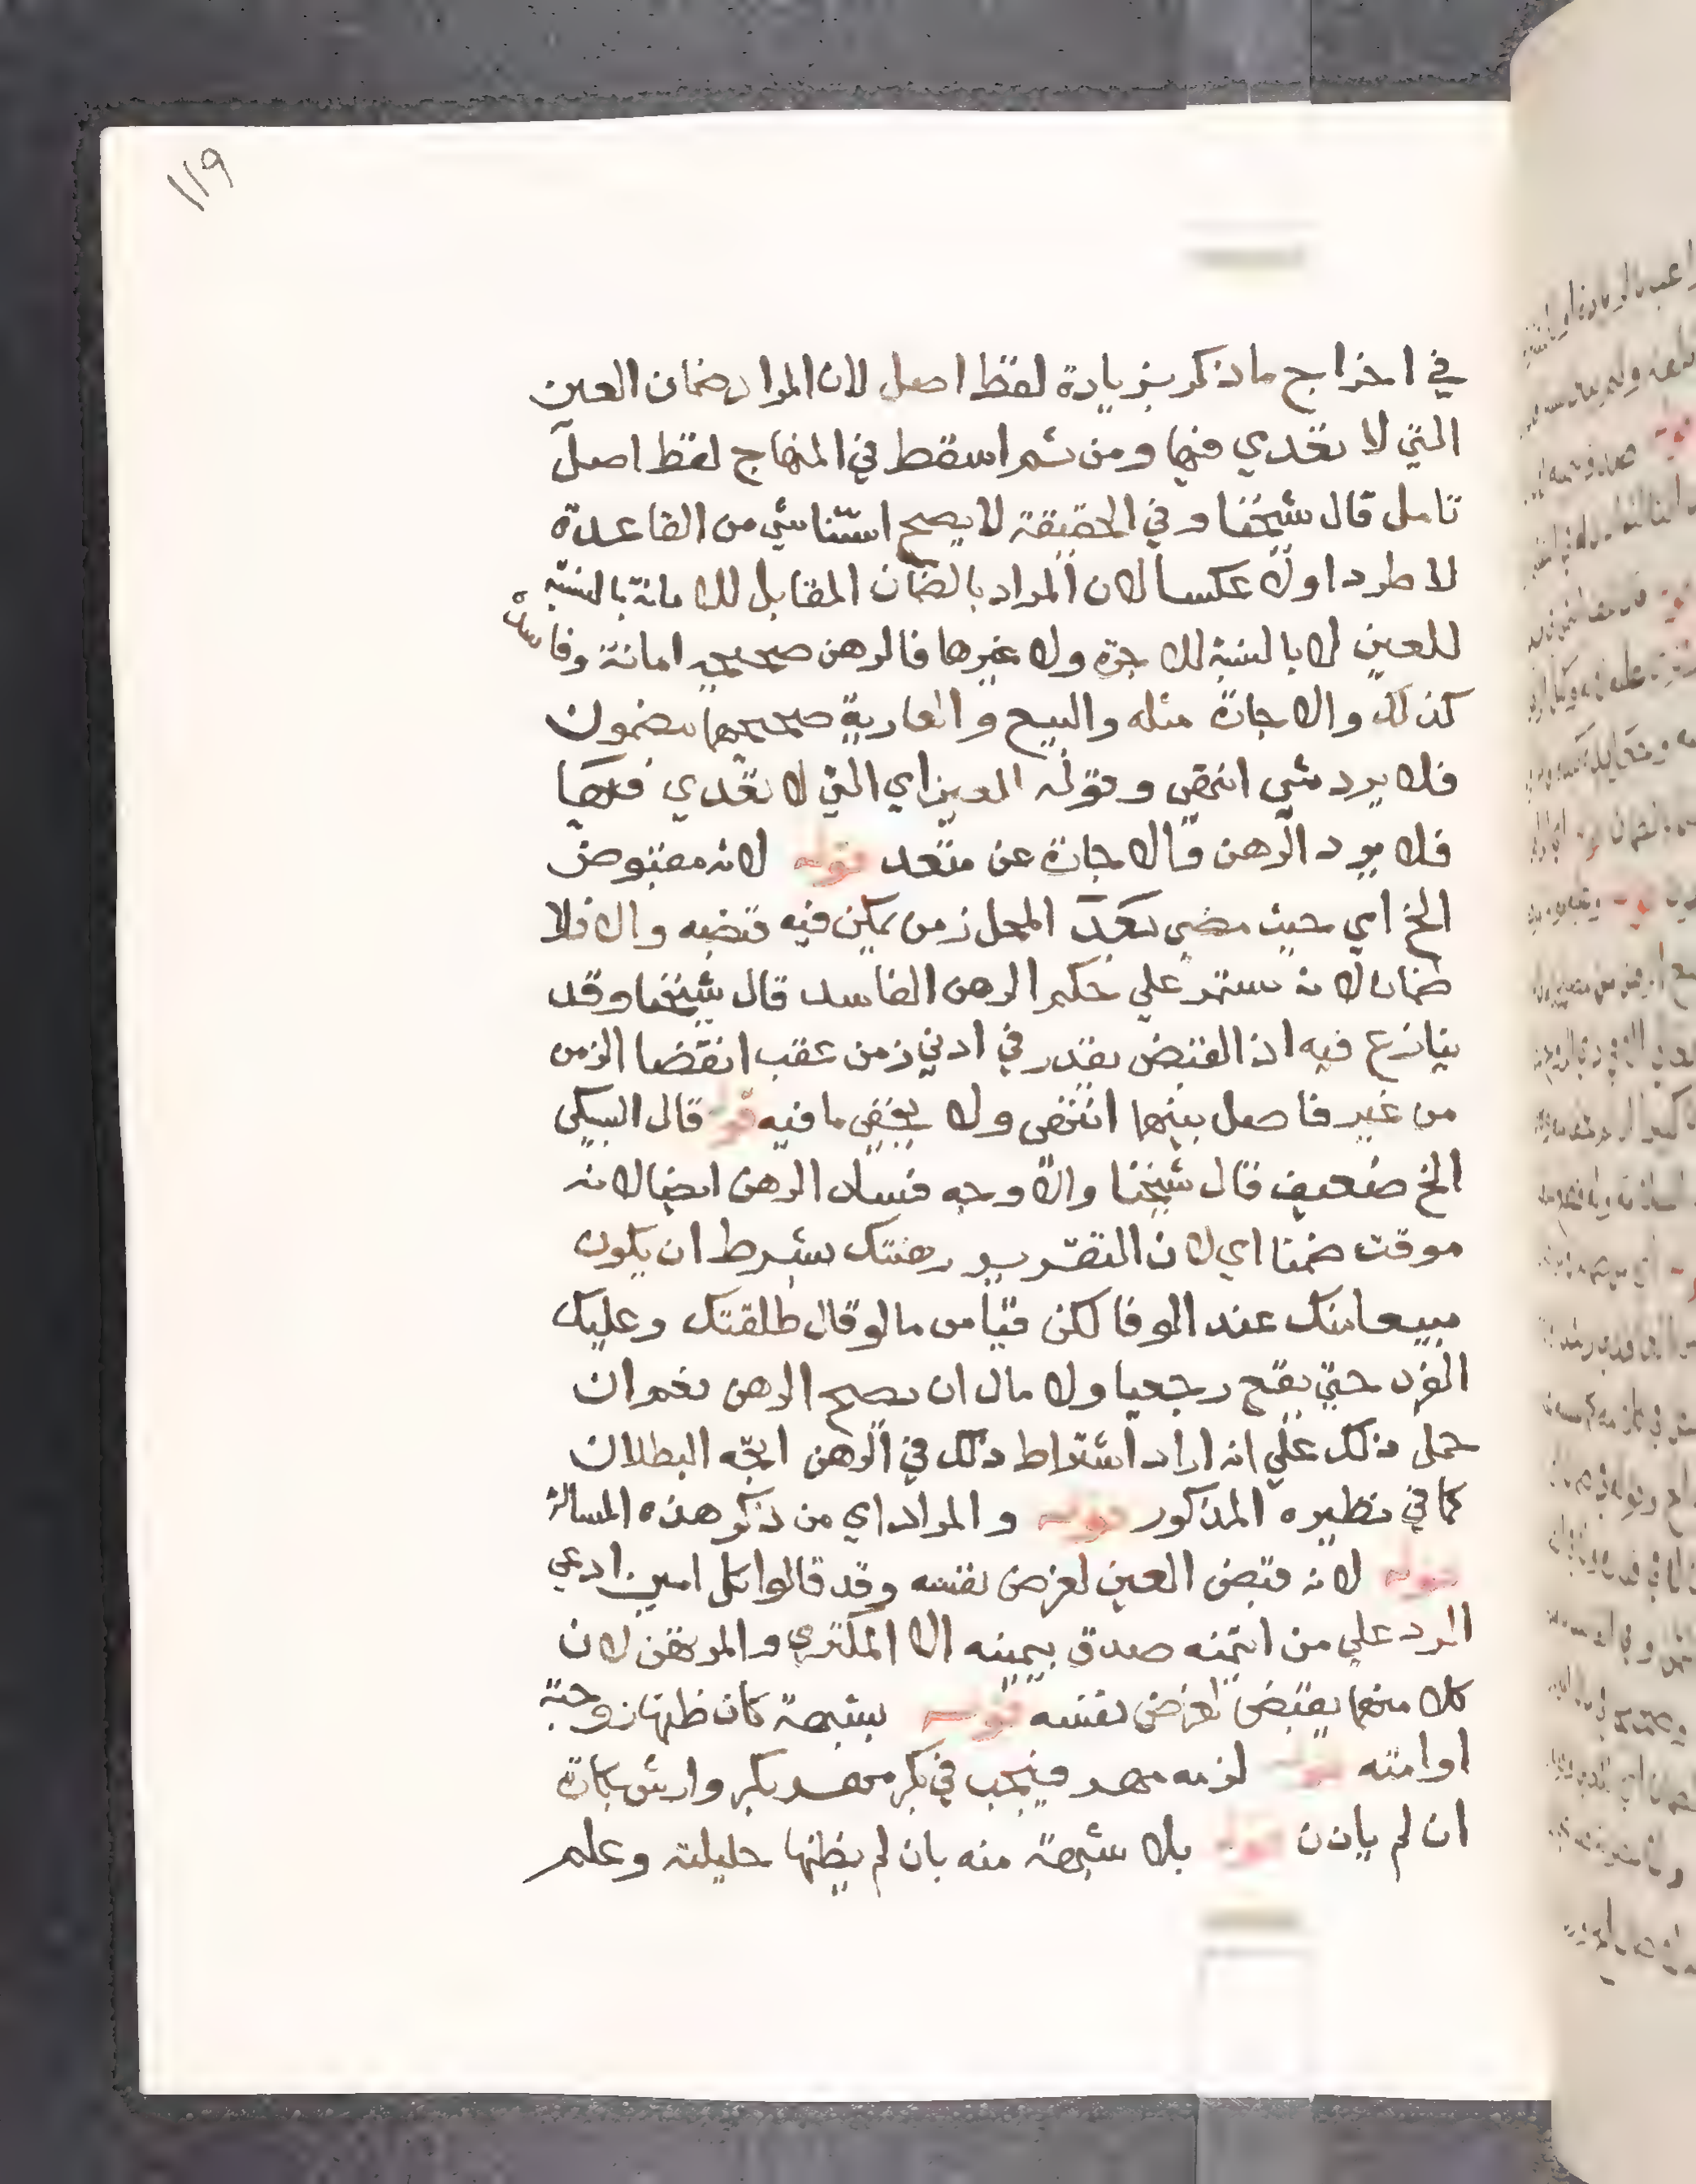 ١١٩
في اخراج ما ذكر بزيادة لفظ اصل لان المراد ضمان العين
التي لا تعدي فيها ومن ثم اسقط في المنهاج لفظ اصل
تامل قال شيخنا وفي الحقيقة لا يصح استثنا شي من القاعدة
لا طردا ولا عكسا لان المراد بالضمان المقابل للامانة بالنسبة
للعين لا بالنسبة للاجرة ولا غيرها فالرهن صحيحه امانة وفاسده
كذلك والاجارة مثله والبيع والعارية صحيحهما مضمون
فلا يرد شي انتهى وقوله العين اي التي لا تعدي فيها
فلا يرد الرهن والاجارة عن متعد قوله لانه مقبوض
الخ اي حيث مضى بعد المحل زمن يمكن فيه قبضه والا فلا
ضمان لانه مستمر علي حكم الرهن الفاسد قال شيخنا وقد
ينازع فيه اذ القبض يقدر في ادني زمن عقب انقضا الزمن
من غير فاصل بينهما انتهى ولا يخفى ما فيه قوله قال السبكي
الخ ضعيف قال شيخنا والاوجه فساد الرهن ايضا لانه
موقت ضمنا اي لان التقدير رهنتك بشرط ان يكون
مبيعا منك عند الوفا لكن قياس ما لو قال طلقتك وعليك
الف حتي يقع رجعيا ولا مال ان يصح الرهن نعم ان
حمل ذلك علي انه اراد اشتراط ذلك في الرهن اتجه البطلان
كما في نظيره المذكور قوله والمراد اي من ذكر هذه المسالة
قوله لانه قبض العين لغرض نفسه وقد قالوا كل امين ادعي
الرد علي من ائتمنه صدق بيمينه الا المكتري والمرتهن لان
كلا منهما يقبض لغرض نفسه قوله بشبهة كان ظنها زوجته
او امته قوله لزمه مهر فيجب في بكر مهر بكر وارش بكارة
ان لم ياذن قوله بلا شبهة منه بان لم يظنها حليلته وعلم